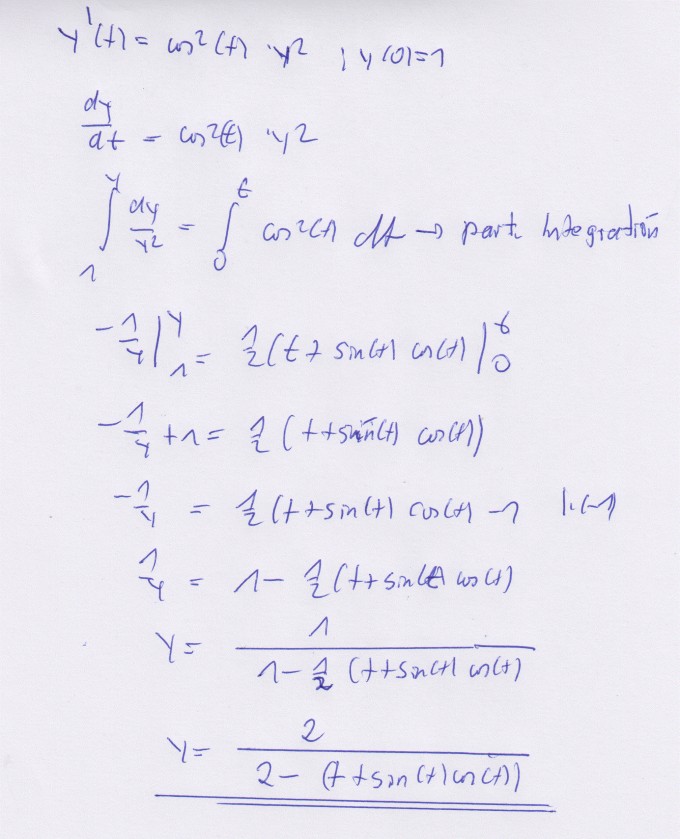 y'(t) = cos²(t) · y² ; y(0)=1
dy/dt = cos²(t) · y²
∫₁^y dy/y² = ∫₀^t cos²(t) dt → part. Integration
-1/y |₁^y = 1/2 (t + sin(t) cos(t)) |₀^t
-1/y + 1 = 1/2 (t + sin(t) cos(t))
-1/y = 1/2 (t + sin(t) cos(t) - 1 |·(-1)
1/y = 1 - 1/2 (t + sin(t) cos(t)
y = 1 / (1 - 1/2 (t + sin(t) cos(t))
y = 2 / (2 - (t + sin(t) cos(t)))